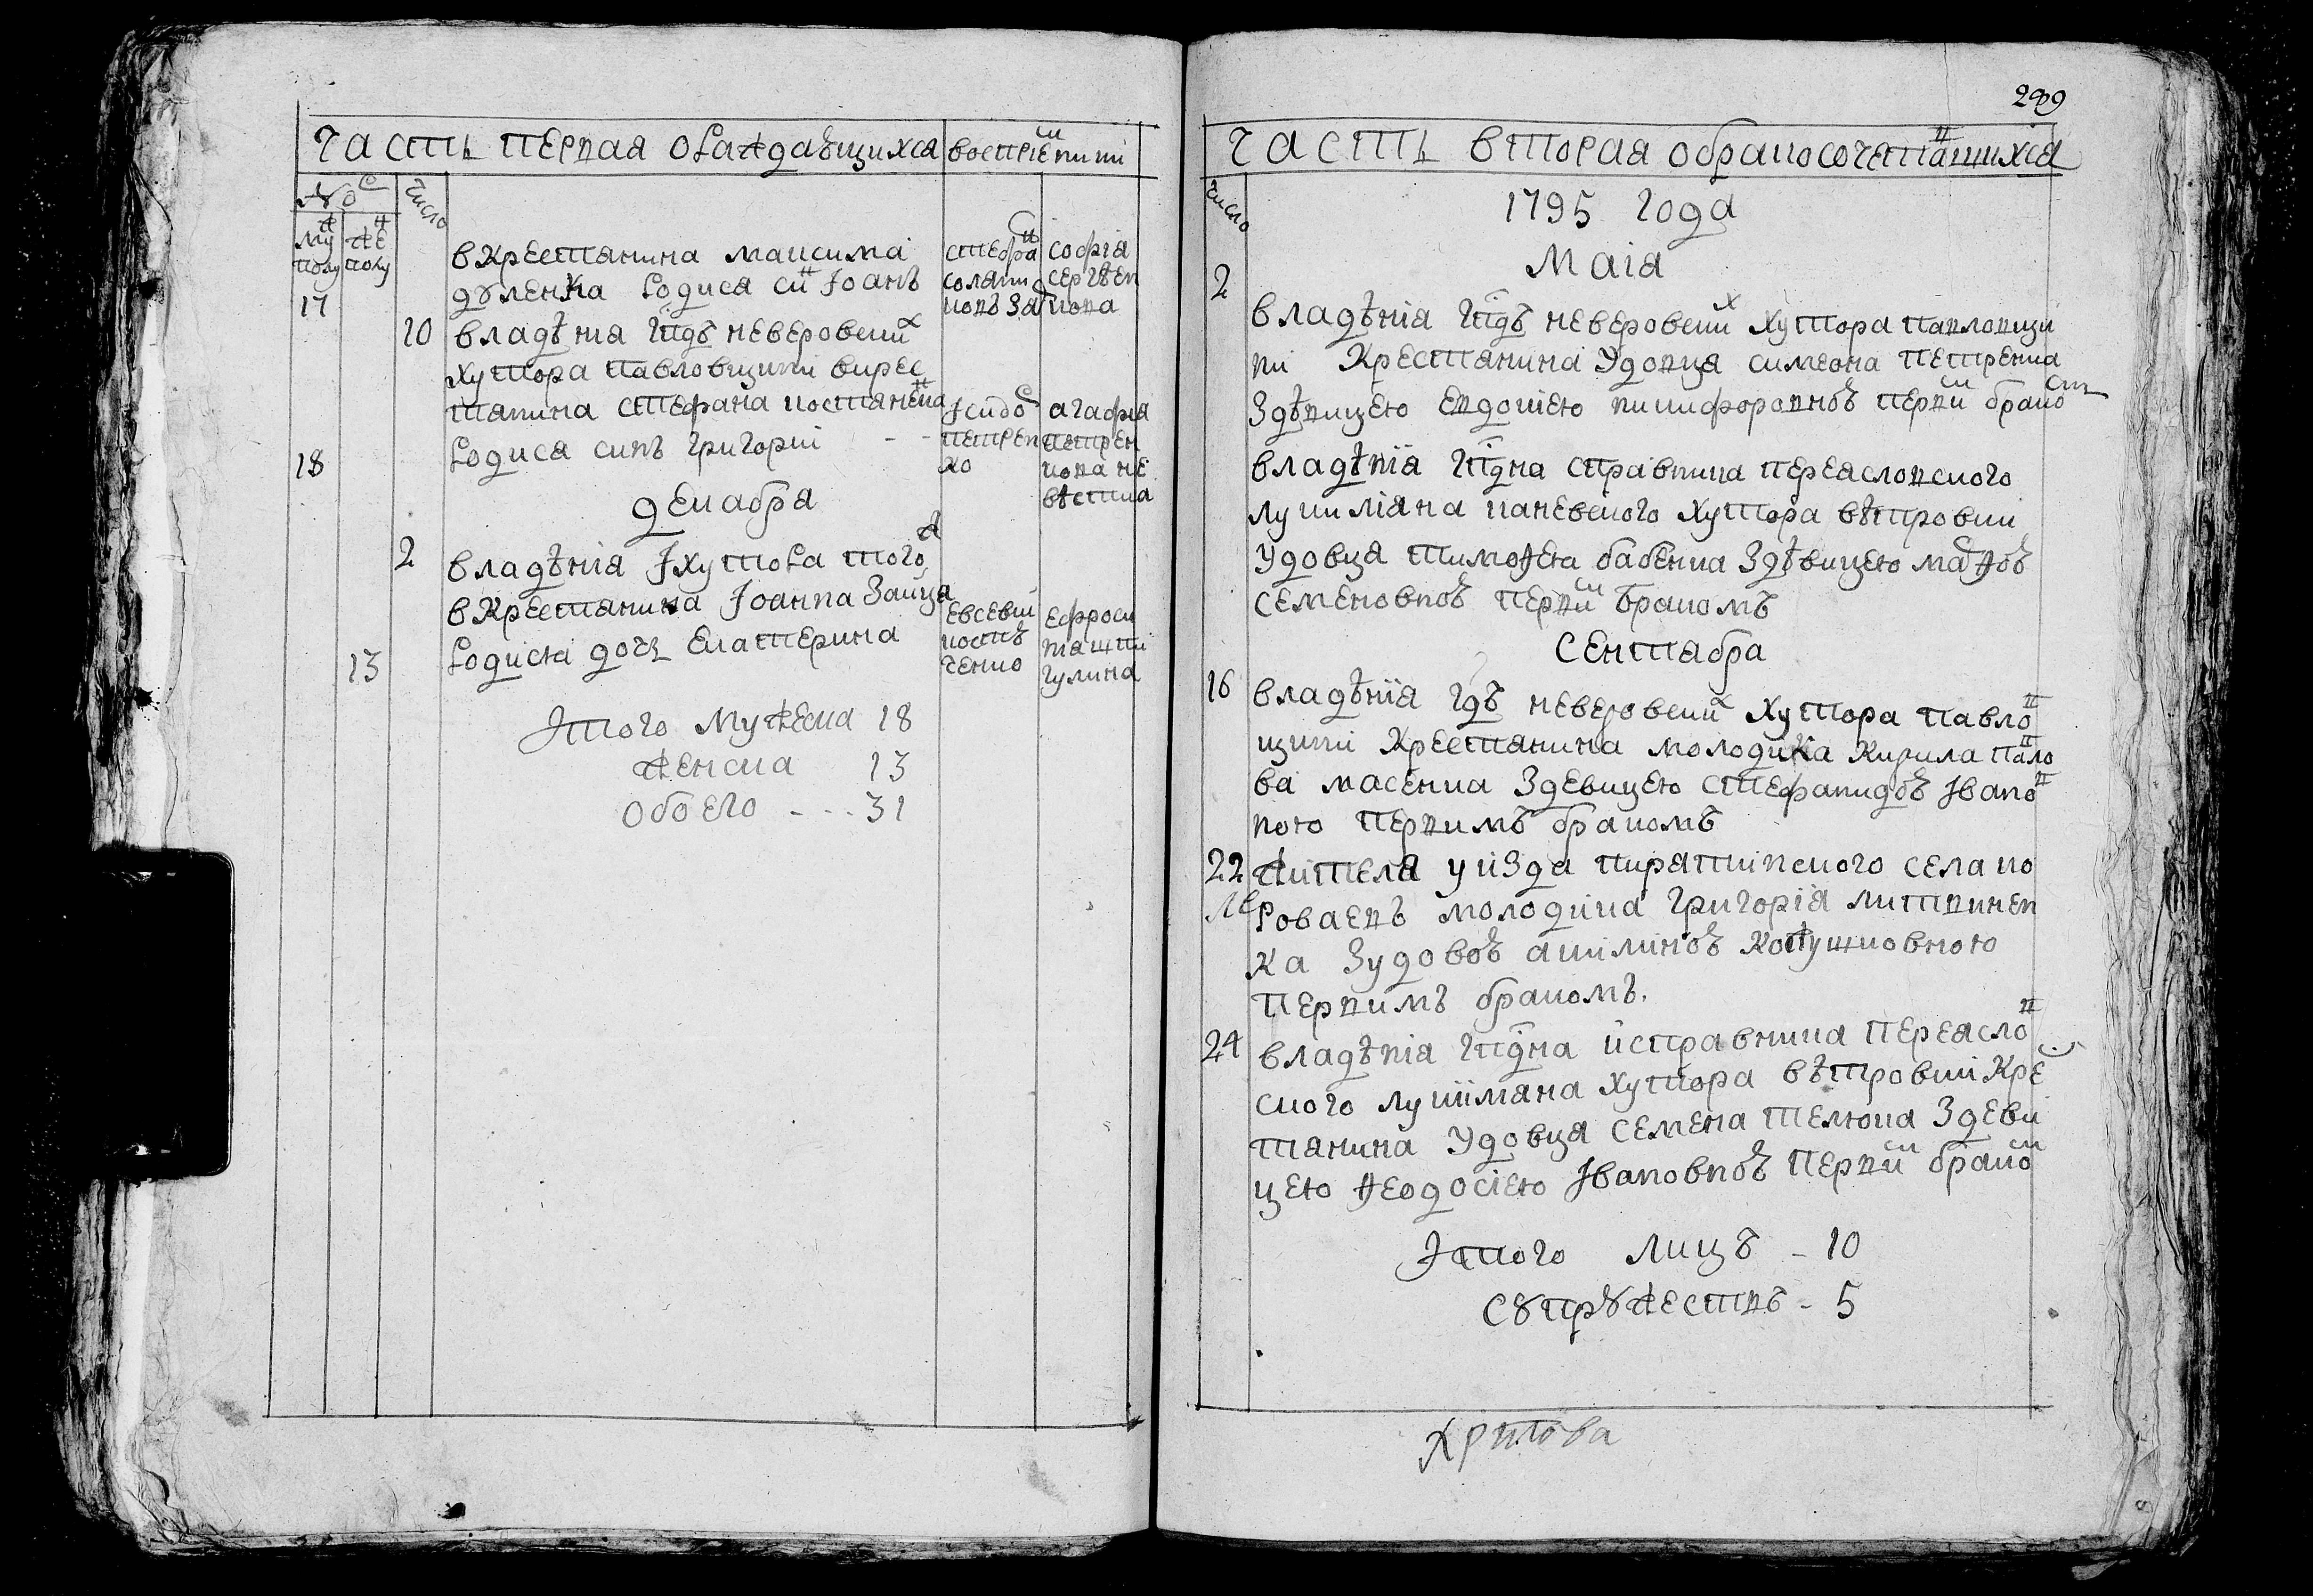 часть первая о раждающихся
воспрїемники
№
число
мужеску
женску
в крестянина максима
дуленка родися синъ Іоанъ
17
стефанъ
солянико
софія
сергѣен
кова
10
владѣнія гпдъ неверовских
хутора павловщини вкрес
тянина стефана костяненка
родися синъ григорій
18
Ісидоръ
петрен
ко
агафія
петрен
кова не
вѣстка
декабря
2
владѣнія і хутора того ж
в крестянина Іоанна Зайця
родися дочь екатерина
13
евсевій
костю
ченко
ефроси
нія
гулина
Итого мужеска 18
женска 13
обоего - - - 31
289
часть вторая о бракосочетавшихся
число
1795 года
Маія
2
владѣнія гпдъ неверовских хутора павловщи
ни крестянина удовца симеона петренка
з дѣвицею евдокіею никифоровноъ первим браком
владѣнія гпдна справника переясловского
лукиліяна каневского хутора вѣтровки
удовца тимофея бабенка з дѣвицею
семеновноъ первим бракомъ
сентабра
16
владѣнія гдъ неверовских хутора павлов
щини крестянина молодика кирила павло
ва масенка з девицею стефанидоъ Іванов
ною первимъ бракомъ
22
жителя уизда пирятинского села ко
роваевъ молодика григорія литвинен
ка з удовоъ акилиноъ
первимъ бракомъ.
24
владѣнія гпдна исправника переяслов
ского лукіяна хутора вѣтровки кре
стянина удовца семена телюка з деви
цею феодосіею Івановноъ первим браком
Итого лицъ - 10
супружествъ - 5